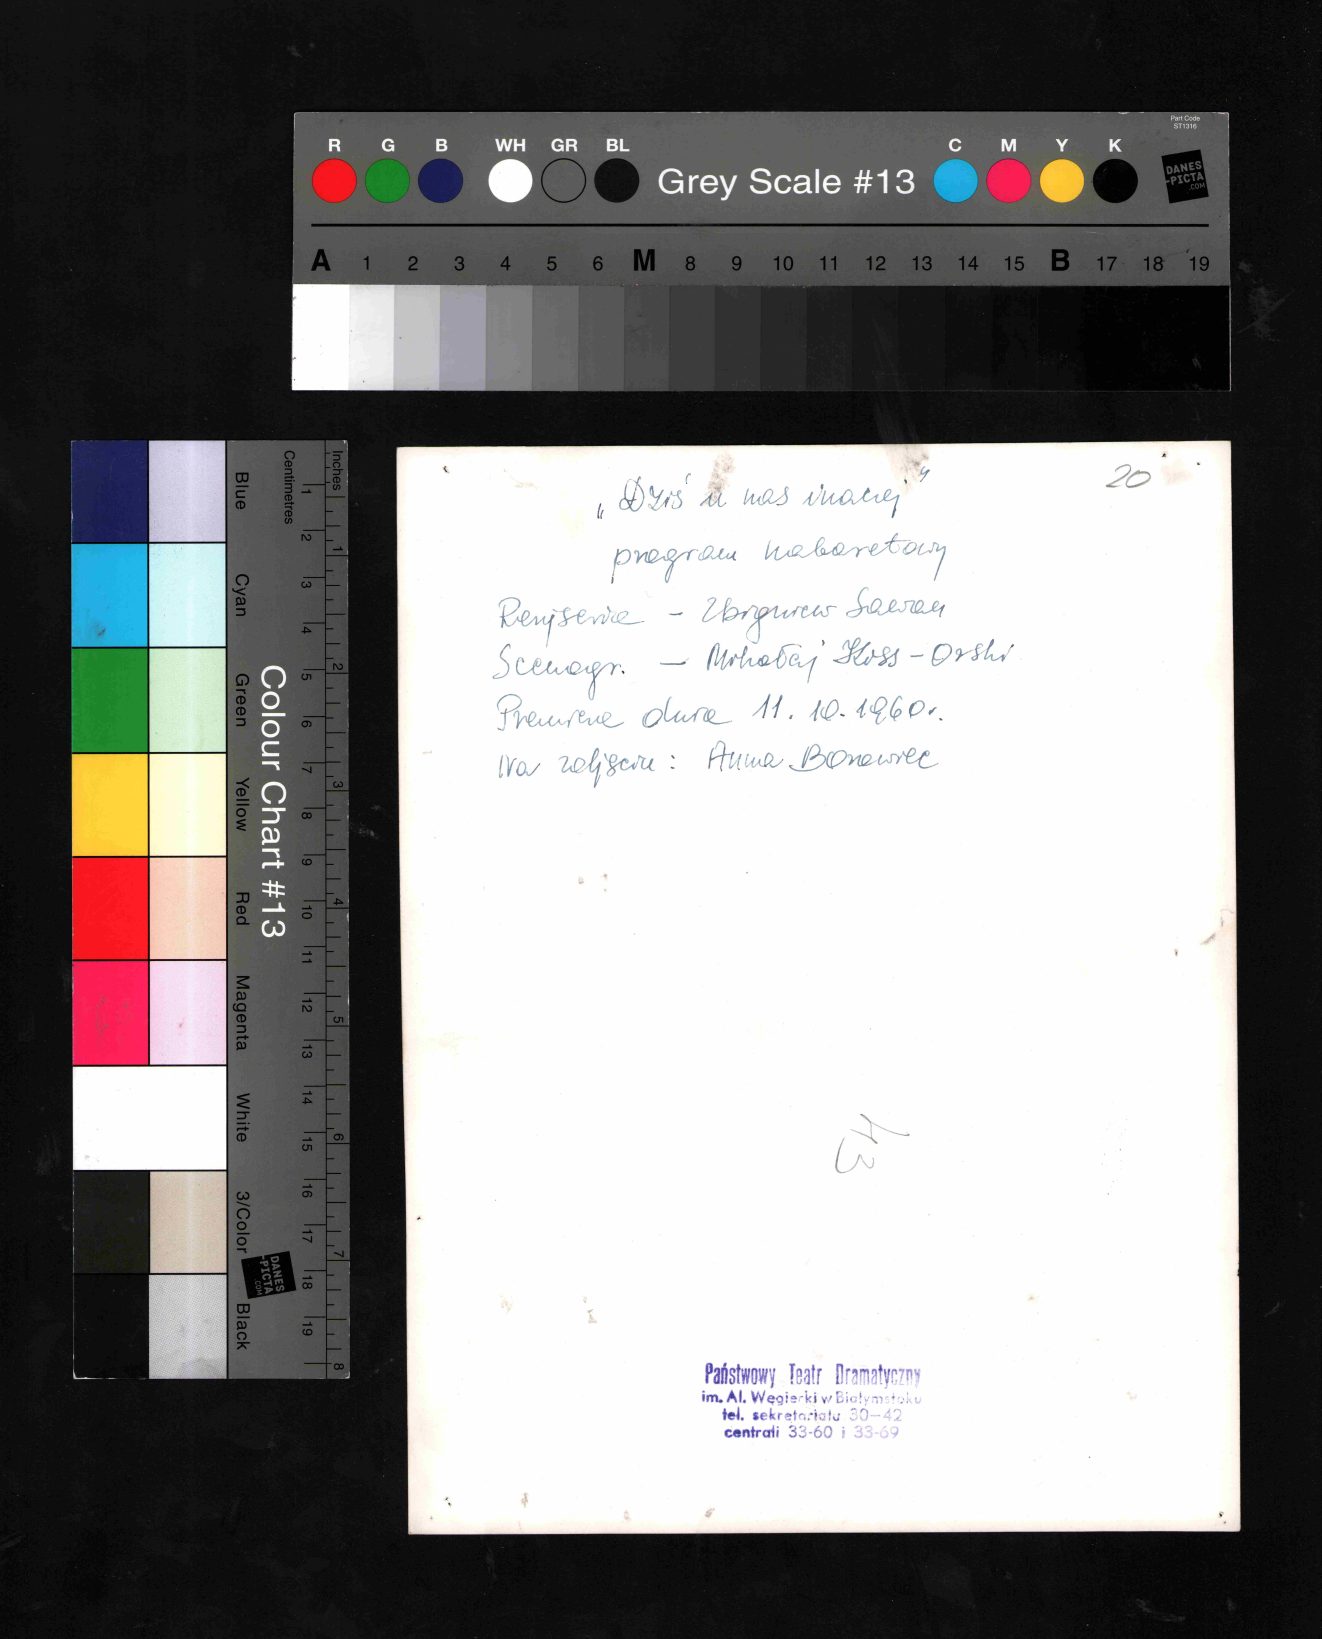 Part Code
ST1316
R G B WH GR BL Grey Scale #13 C M Y K
DANES
-PICTA
.COM
A 1 2 3 4 5 6 M 8 9 10 11 12 13 14 15 B 17 18 19
Inches
Centimetres
Colour Chart #13
Blue
Cyan
Green
Yellow
Red
Magenta
White
3/Color
Black
1 2 3 4 5 6 7 8 9 10 11 12 13 14 15 16 17 18 19
1 2 3 4 5 6 7 8
DANES
-PICTA
.COM
20
„Dziś u nas inaczej”
program kabaretowy
Reżyseria – Zbigniew Sawan
Scenogr. – Mikołaj Koss-Orski
Premiera dnia 11.10.1960r.
Na zdjęciu: Anna
Państwowy Teatr Dramatyczny
im. Al. Węgierki w Białymstoku
tel. sekretariatu 30–42
centrali 33-60 i 33-69